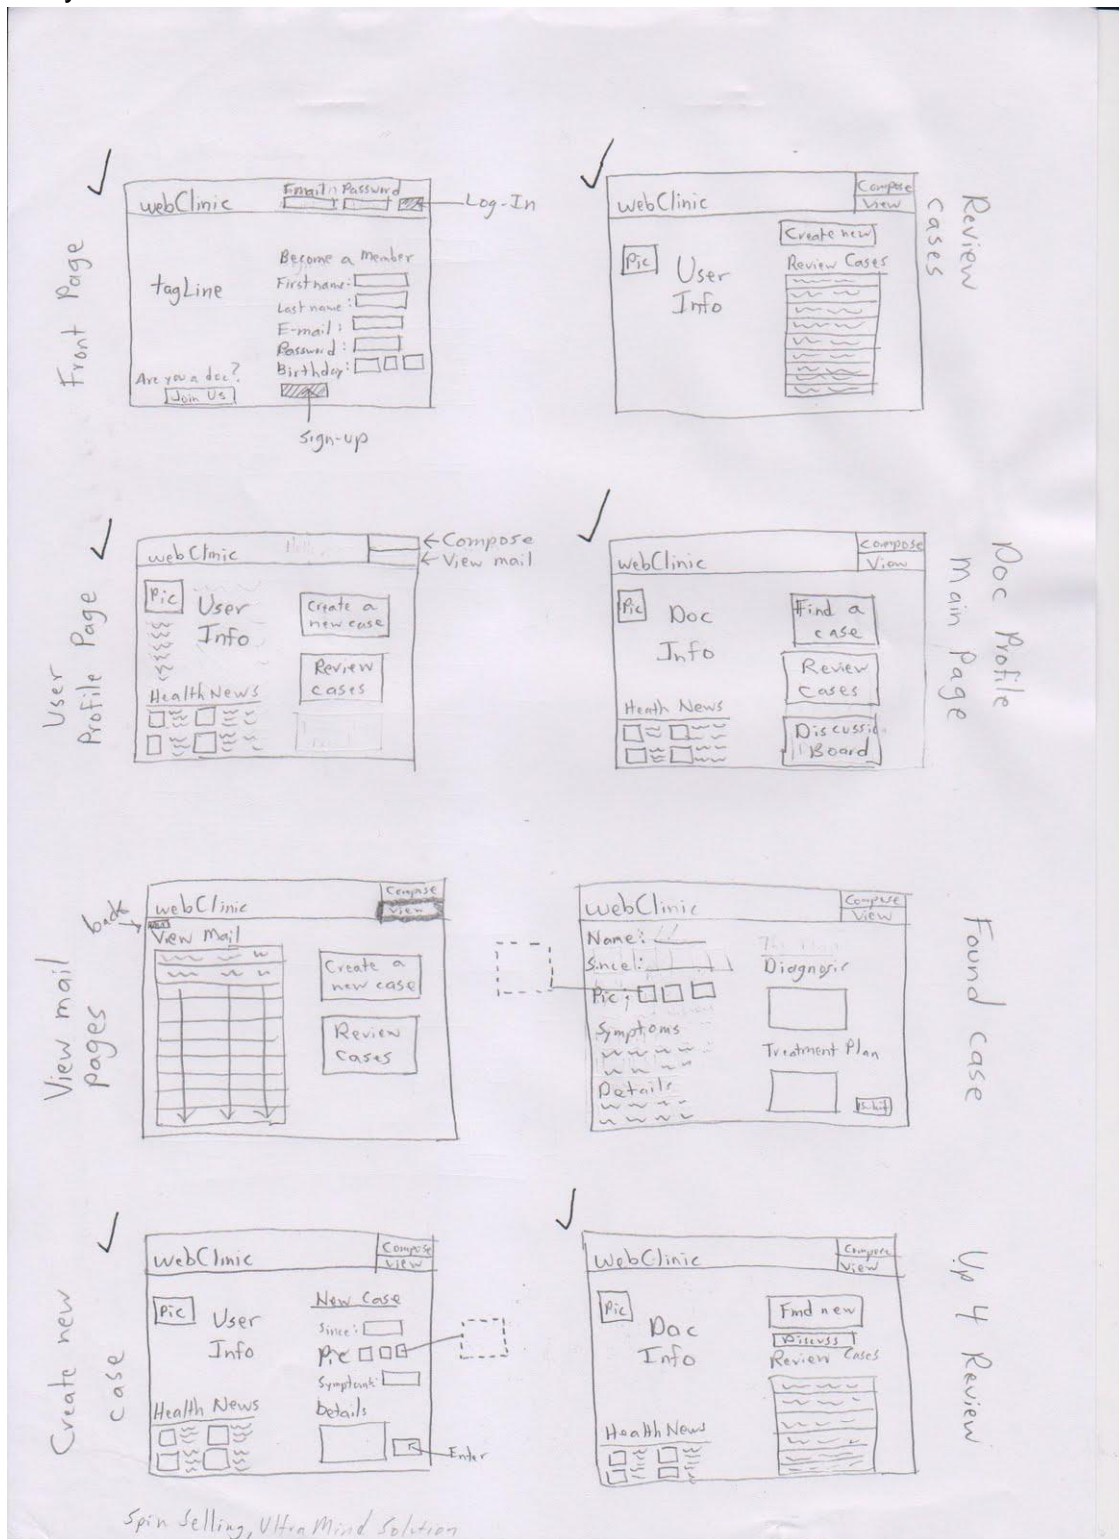 Front Page
webClinic
Email Password
Log-In
tagLine
Become a member
First name:
Last name:
E-mail:
Password:
Birthday:
Are you a doc?
Join Us
sign-up
Review cases
webClinic
Compose
View
Pic
User
Info
Create new
Review Cases
User Profile Page
webClinic
Compose
View mail
Pic
User
Info
Create a
new case
Review
cases
Health News
Doc Profile
Main Page
webClinic
Compose
View
Pic
Doc
Info
Find a
case
Review
Cases
Heath News
Discussio
Board
View mail
pages
back
webClinic
Compose
View
View Mail
Create a
new case
Review
Cases
Found case
webClinic
Compose
View
Name:
Since:
Pic:
Symptoms
Details
Diagnosis
Treatment Plan
Create new
case
webClinic
Compose
View
Pic
User
Info
New Case
Since:
Pic
Details
Enter
Health News
Up 4 Review
webClinic
Compose
View
Pic
Doc
Info
Find new
Discuss
Review Cases
Health News
Spin Selling, UltraMind Solution